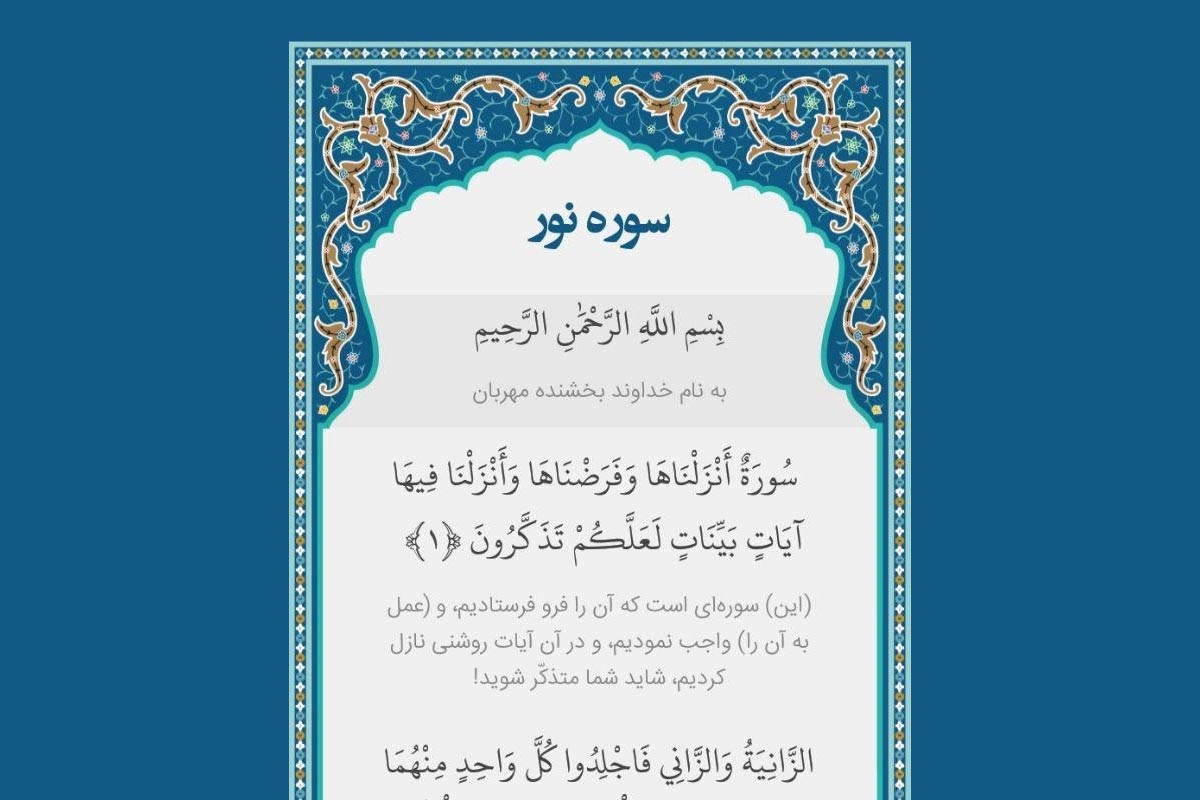 سوره نور
بِسْمِ اللَّهِ الرَّحْمَٰنِ الرَّحِيمِ
به نام خداوند بخشنده مهربان
سُورَةٌ أَنْزَلْنَاهَا وَفَرَضْنَاهَا وَأَنْزَلْنَا فِيهَا
آيَاتٍ بَيِّنَاتٍ لَعَلَّكُمْ تَذَكَّرُونَ ﴿١﴾
(این) سوره‌ای است که آن را فرو فرستادیم، و (عمل
به آن را) واجب نمودیم، و در آن آیات روشنی نازل
کردیم، شاید شما متذکّر شوید!
الزَّانِيَةُ وَالزَّانِي فَاجْلِدُوا كُلَّ وَاحِدٍ مِنْهُمَا